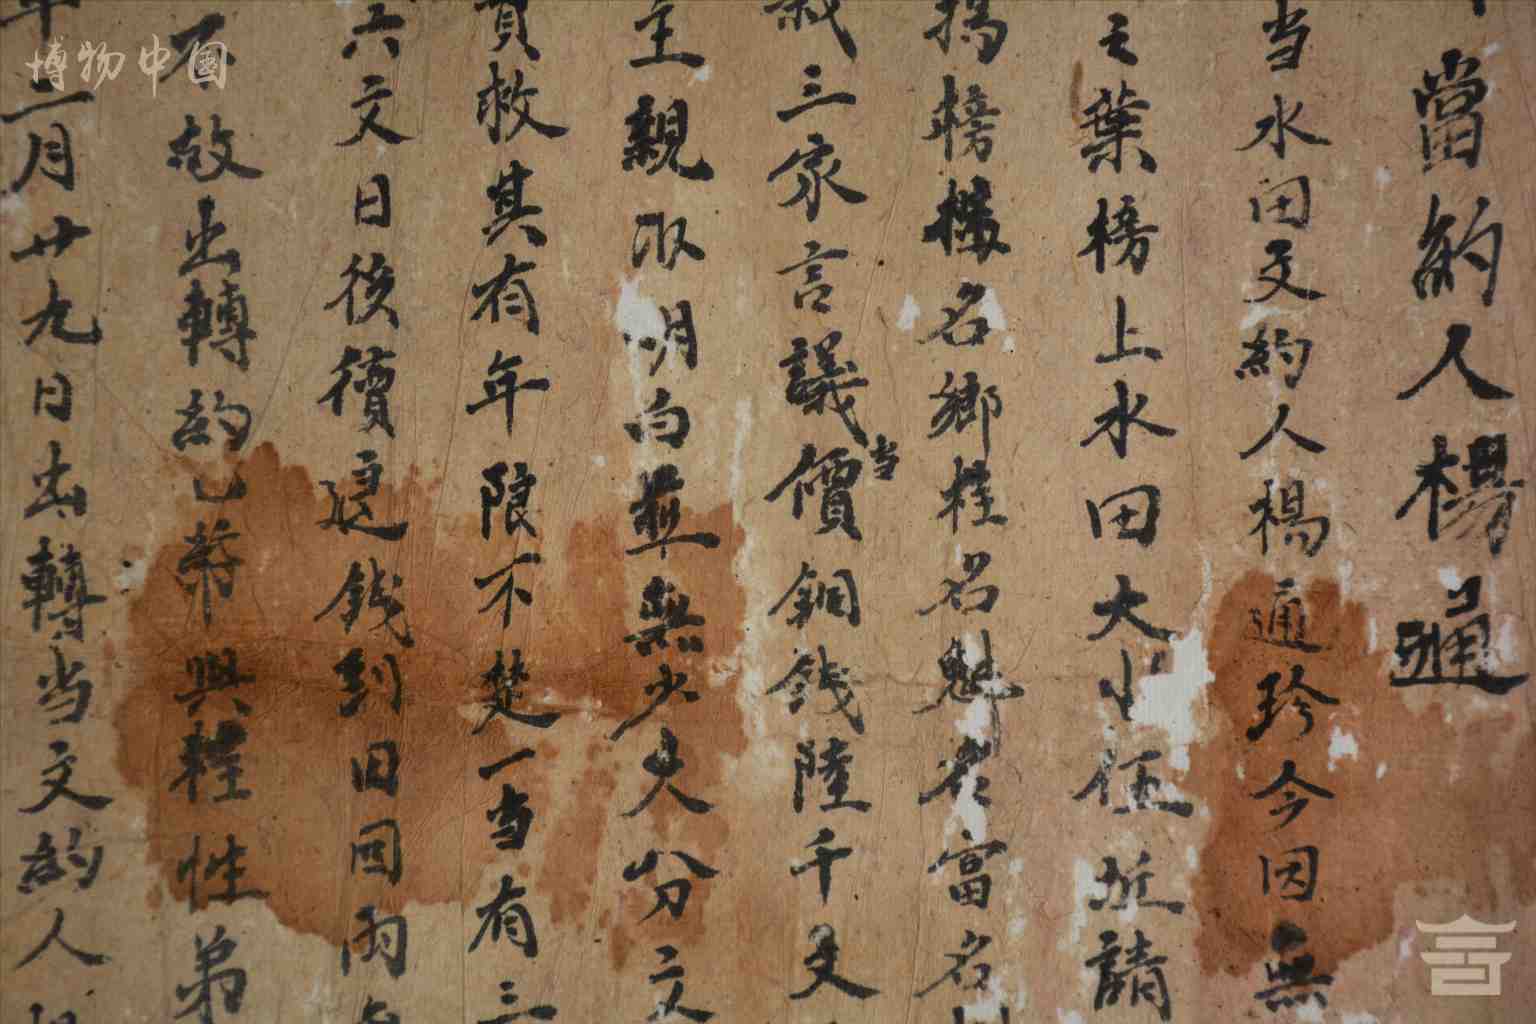 當約人楊通
当水田文約人楊通珍今因無
之葉榜上水田大小伍坵請
榜樣名鄉桂名魁名富名
三家言議價当銅錢陸千文
主親收明白並無少欠分文
買救其有年限不楚一当有三
六文日後價退錢到田回兩
不敢出轉約已幣與桂性弟
年二月廿九日出轉当文約人
博物中国